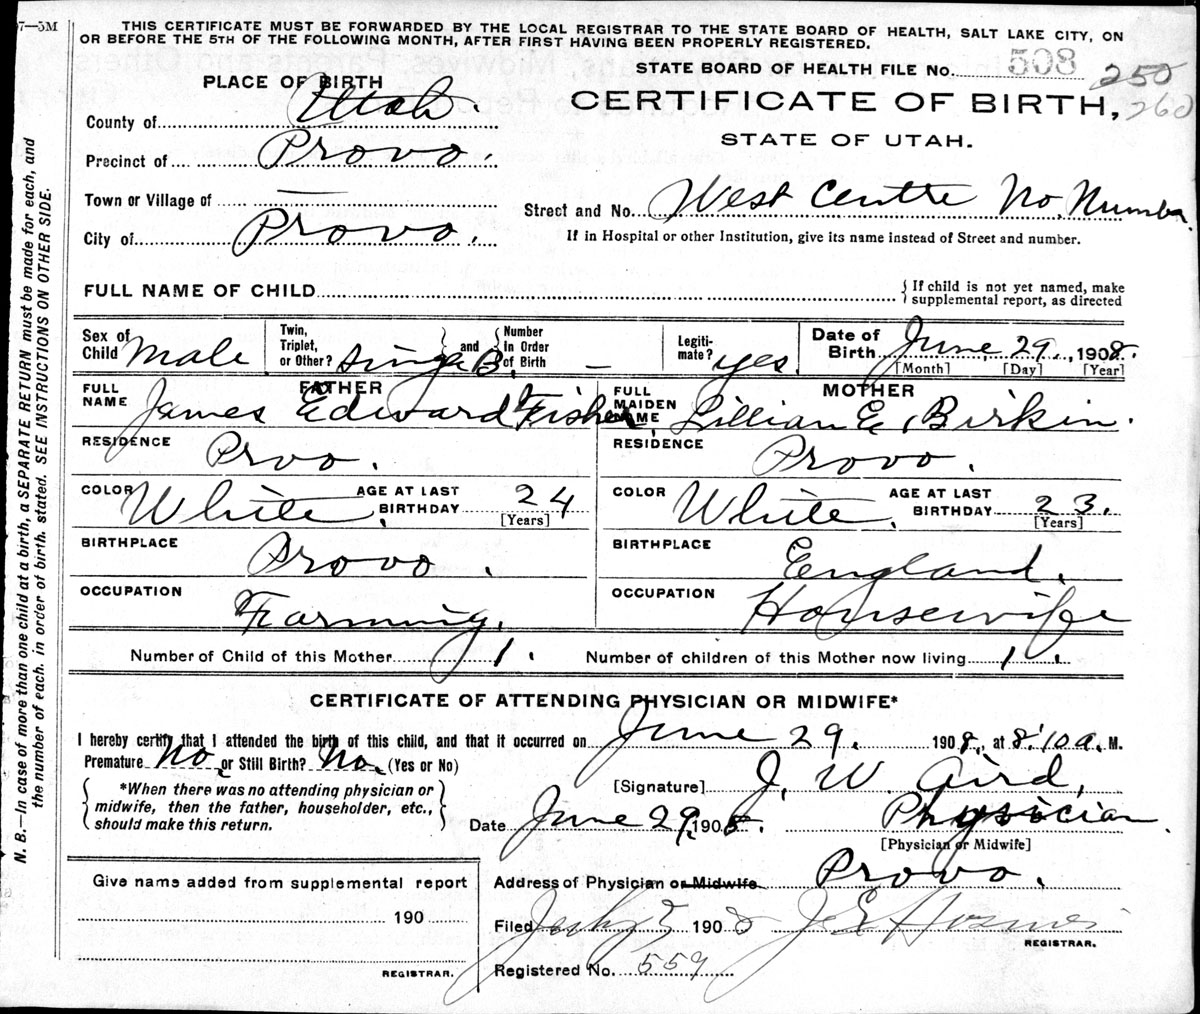 07—5M
THIS CERTIFICATE MUST BE FORWARDED BY THE LOCAL REGISTRAR TO THE STATE BOARD OF HEALTH, SALT LAKE CITY, ON
OR BEFORE THE 5TH OF THE FOLLOWING MONTH, AFTER FIRST HAVING BEEN PROPERLY REGISTERED.
STATE BOARD OF HEALTH FILE No. 508 250
260
PLACE OF BIRTH
CERTIFICATE OF BIRTH,
STATE OF UTAH.
County of Utah.
Precinct of Provo.
Town or Village of —
City of Provo.
Street and No. West Centre No. Number.
If in Hospital or other Institution, give its name instead of Street and number.
FULL NAME OF CHILD { If child is not yet named, make
supplemental report, as directed
Sex of Child Male
Twin, Triplet, or Other? Single B. and Number in Order of Birth —
Legiti- mate? yes.
Date of Birth June 29, 1908.
[Month] [Day] [Year]
FATHER
FULL NAME James Edward Fisher.
RESIDENCE Provo.
COLOR White AGE AT LAST BIRTHDAY 24
[Years]
BIRTHPLACE Provo.
OCCUPATION Farming.
MOTHER
FULL MAIDEN NAME Lillian E. Birkin.
RESIDENCE Provo.
COLOR White. AGE AT LAST BIRTHDAY 23.
[Years]
BIRTHPLACE England.
OCCUPATION Housewife
Number of Child of this Mother 1. Number of children of this Mother now living 1.
CERTIFICATE OF ATTENDING PHYSICIAN OR MIDWIFE*
I hereby certify that I attended the birth of this child, and that it occurred on June 29. 1908, at 8:10 a. M.
Premature No. or Still Birth? No. (Yes or No)
*When there was no attending physician or
midwife, then the father, householder, etc.,
should make this return.
[Signature] J. W. Aird,
Date June 29, 1908. Physician.
[Physician or Midwife]
Address of Physician or Midwife Provo.
Give name added from supplemental report
190
REGISTRAR.
Filed July 5 1908
REGISTRAR.
Registered No. 559
N. B.—In case of more than one child at a birth, a SEPARATE RETURN must be made for each, and
the number of each, in order of birth, stated. SEE INSTRUCTIONS ON OTHER SIDE.